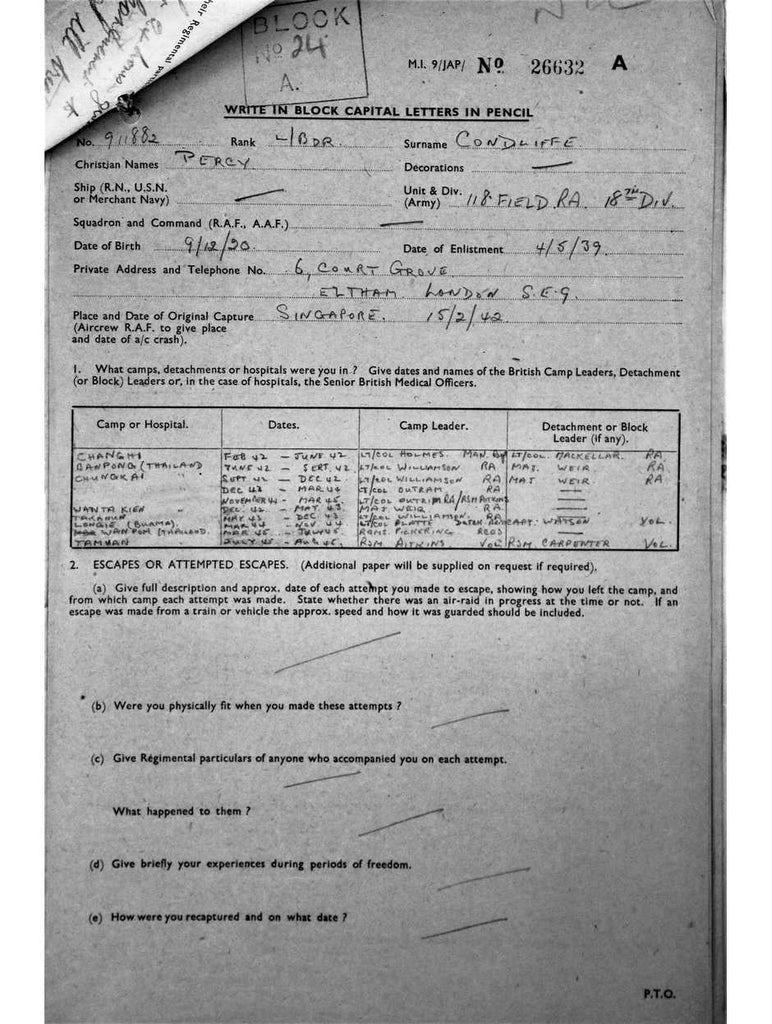 their Regimental part
BLOCK
NO 24
A.
M.I. 9/JAP/ No 26632 A
WRITE IN BLOCK CAPITAL LETTERS IN PENCIL
No. 911882 Rank L/BDR. Surname CONDLIFFE
Christian Names PERCY Decorations —
Ship (R.N., U.S.N. or Merchant Navy) — Unit & Div. (Army) 118 FIELD RA. 18TH DIV.
Squadron and Command (R.A.F., A.A.F.) —
Date of Birth 9/12/20. Date of Enlistment 4/5/39.
Private Address and Telephone No. 6, COURT GROVE
ELTHAM LONDON S.E.9.
Place and Date of Original Capture SINGAPORE. 15/2/42.
(Aircrew R.A.F. to give place
and date of a/c crash).
1. What camps, detachments or hospitals were you in ? Give dates and names of the British Camp Leaders, Detachment
(or Block) Leaders or, in the case of hospitals, the Senior British Medical Officers.
Camp or Hospital. Dates. Camp Leader. Detachment or Block Leader (if any).
CHANGHI FEB 42 — JUNE 42 LT/COL HOLMES. MAN. LT/COL. MACKELLAR. RA
BANPONG (THAILAND JUNE 42 — SEPT. 42. LT/COL WILLIAMSON RA MAJ. WEIR. RA
CHUNGKAI " SEPT 42 — DEC 42. LT/COL WILLIAMSON RA MAJ WEIR RA
DEC 43 — MAR 44 LT/COL OUTRAM RA —
NOVEMBER 44 — MAR 45. LT/COL OUTRAM RA/RSM AITKINS —
WANTA KIEN " DEC. 42 — MAY 43 MAJ WEIR RA —
TAKANUN " MAY 43 — DEC 43. LT/COL WILLIAMSON. RA —
LONGIE (BURMA). MAR 44 — NOV 44. LT/COL PLATTE CAPT. WATSON VOL.
WANPOM (THAILAND. MAR 45 — JULY 45. PICKERING —
TAMUAN JULY 45 — AUG 45. RSM AITKINS VOL RSM. CARPENTER VOL.
2. ESCAPES OR ATTEMPTED ESCAPES. (Additional paper will be supplied on request if required).
(a) Give full description and approx. date of each attempt you made to escape, showing how you left the camp, and
from which camp each attempt was made. State whether there was an air-raid in progress at the time or not. If an
escape was made from a train or vehicle the approx. speed and how it was guarded should be included.
(b) Were you physically fit when you made these attempts ?
(c) Give Regimental particulars of anyone who accompanied you on each attempt.
What happened to them ?
(d) Give briefly your experiences during periods of freedom.
(e) How were you recaptured and on what date ?
P.T.O.